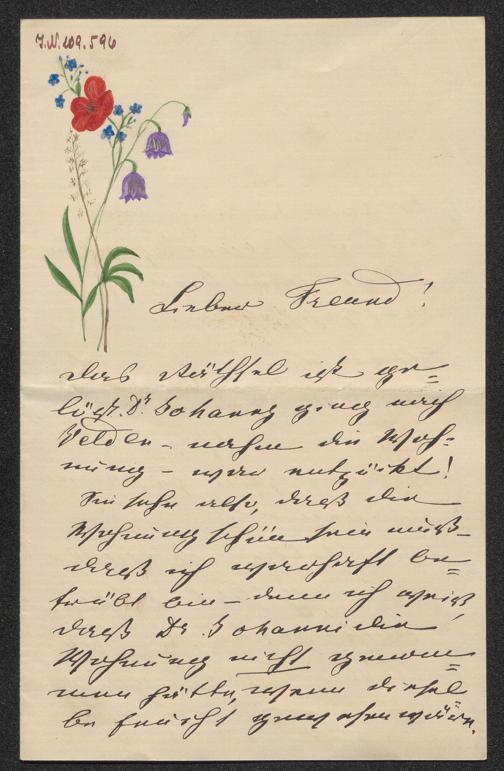 J.N. 109.596
Lieber Freund!
das Räthsel ist ge=
löst. Dr. Johanny ging nach
Velden – nahm die Woh=
nung – war entzückt!
Sie sehn also, daß die
Wohnung schön sein muß –
daß ich wahrhaft be=
trübt bin – denn ich weiß
daß Dr. Johanni die
Wohnung nicht genom=
men hätte, wenn diesel
be feucht gewesen wäre.